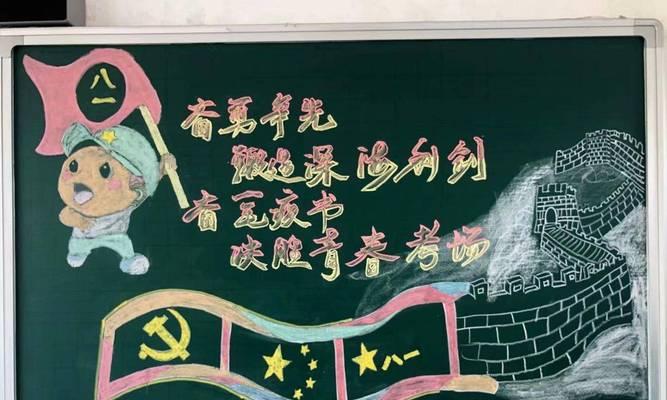 八一
奋勇争先
锻造深海利剑
奋笔疾书
决胜青春考场
八一